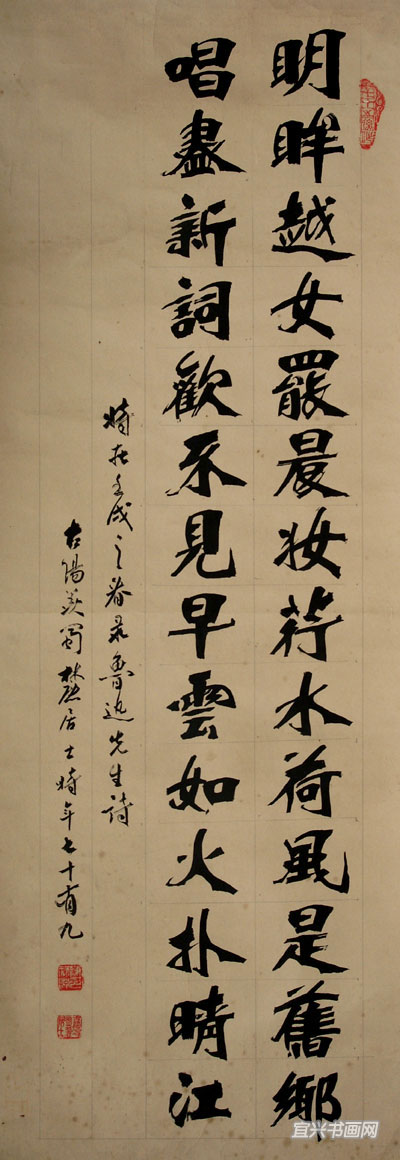 明眸越女罷晨妆荇水荷風是舊鄉
唱盡新詞歡不見早雲如火扑晴江
時在壬戌之春录魯迅先生詩
古陽羨蜀麓居士時年七十有九
宜兴书画网